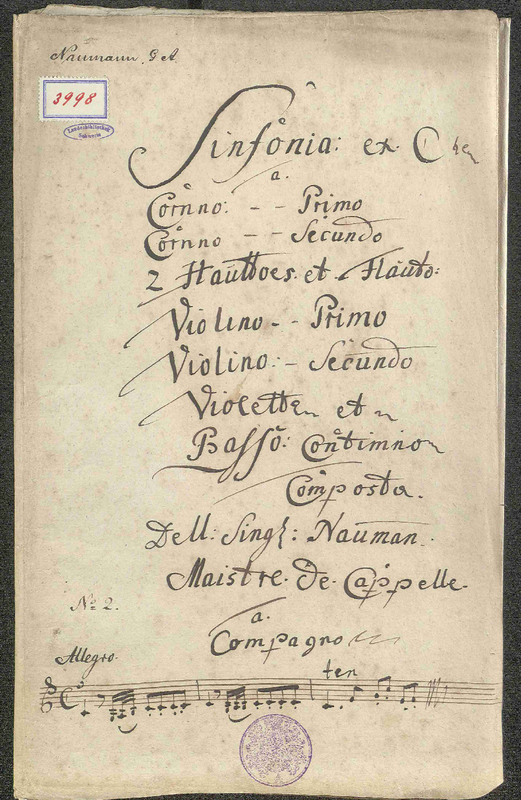 Naumann, J. A.
3998
Landesbibliothek
Schwerin
Sinfonia: ex. C
a.
Cornno: - - Primo
Cornno - - Secundo
2 Hauttoes. et Flauto:
Violino - - Primo
Violino: - Secundo
Violetten et
Basso: Contimnno
Composta.
Dell: Singl: Nauman.
Maistre. de. Cappelle.
a.
Compagno
No 2.
Allegro.
ten